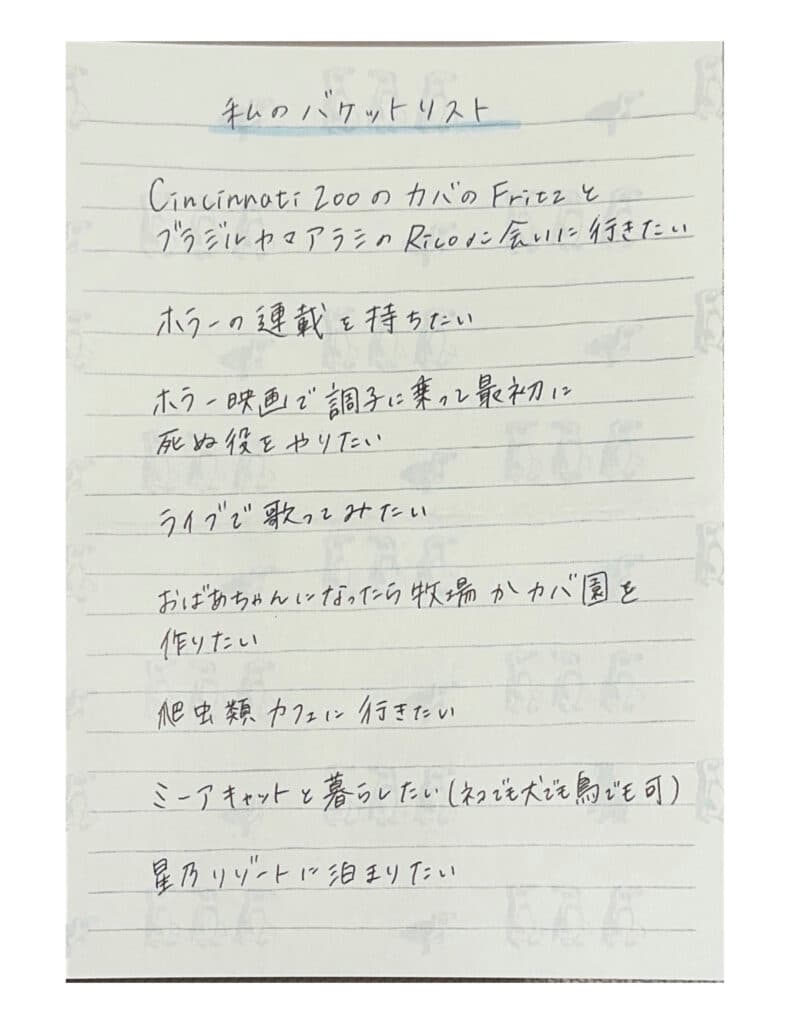 私のバケットリスト
Cincinnati Zooのカバの Fritzと
ブラジルヤマアラシのRicoに会いに行きたい
ホラーの連載を持ちたい
ホラー映画で調子に乗って最初に
死ぬ役をやりたい
ライブで歌ってみたい
おばあちゃんになったら牧場かカバ園を
作りたい
爬虫類カフェに行きたい
ミーアキャットと暮らしたい(ネコでも犬でも鳥でも可)
星乃リゾートに泊まりたい